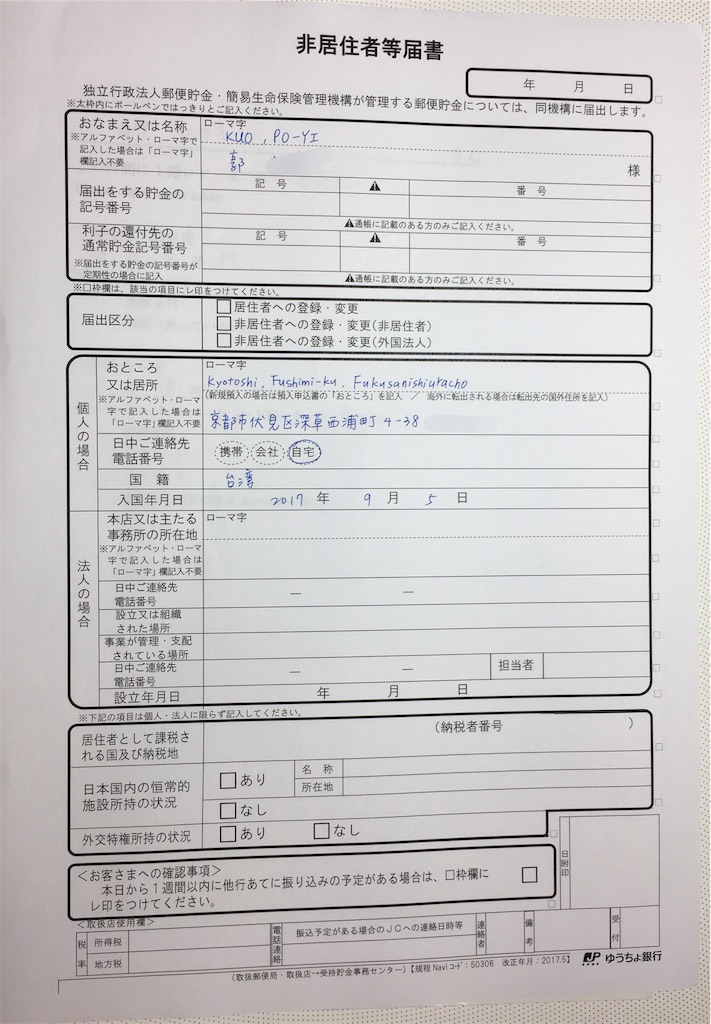 非居住者等届書
年 月 日
独立行政法人郵便貯金・簡易生命保険管理機構が管理する郵便貯金については、同機構に届出します。
※太枠内にボールペンではっきりとご記入ください。
おなまえ又は名称
※アルファベット・ローマ字で
記入した場合は「ローマ字」
欄記入不要
ローマ字
KUO, PO-YI
郭
様
届出をする貯金の
記号番号
記 号
番 号
⚠通帳に記載のある方のみご記入ください。
利子の還付先の
通常貯金記号番号
※届出をする貯金の記号番号が
定期性の場合に記入
記 号
番 号
⚠通帳に記載のある方のみご記入ください。
※□枠欄は、該当の項目にレ印をつけてください。
届出区分
□居住者への登録・変更
□非居住者への登録・変更(非居住者)
□非居住者への登録・変更(外国法人)
個人の場合
おところ
又は居所
※アルファベット・ローマ
字で記入した場合は
「ローマ字」欄記入不要
ローマ字
Kyotoshi, Fushimi-ku, Fukusanishiuracho
(新規預入の場合は預入申込書の「おところ」を記入 / 海外に転出される場合は転出先の国外住所を記入)
京都市伏見区深草西浦町 4-38
日中ご連絡先
電話番号
携帯 会社 自宅
国 籍
台湾
入国年月日
2017 年 9 月 5 日
法人の場合
本店又は主たる
事務所の所在地
※アルファベット・ローマ
字で記入した場合は
「ローマ字」欄記入不要
ローマ字
日中ご連絡先
電話番号
— —
設立又は組織
された場所
事業が管理・支配
されている場所
日中ご連絡先
電話番号
— —
担当者
設立年月日
年 月 日
※下記の項目は個人・法人に限らず記入してください。
居住者として課税さ
れる国及び納税地
(納税者番号 )
日本国内の恒常的
施設所持の状況
□あり
名 称
所在地
□なし
外交特権所持の状況
□あり □なし
<お客さまへの確認事項>
本日から1週間以内に他行あてに振り込みの予定がある場合は、□枠欄に
レ印をつけてください。
日附印
<取扱店使用欄>
税率
所得税
地方税
電話連絡
振込予定がある場合のJCへの連絡日時等
連絡者
備考
受付
(取扱郵便局・取扱店→受持貯金事務センター)【規程Naviコード:50306 改正年月:2017.5】
JP BANK ゆうちょ銀行